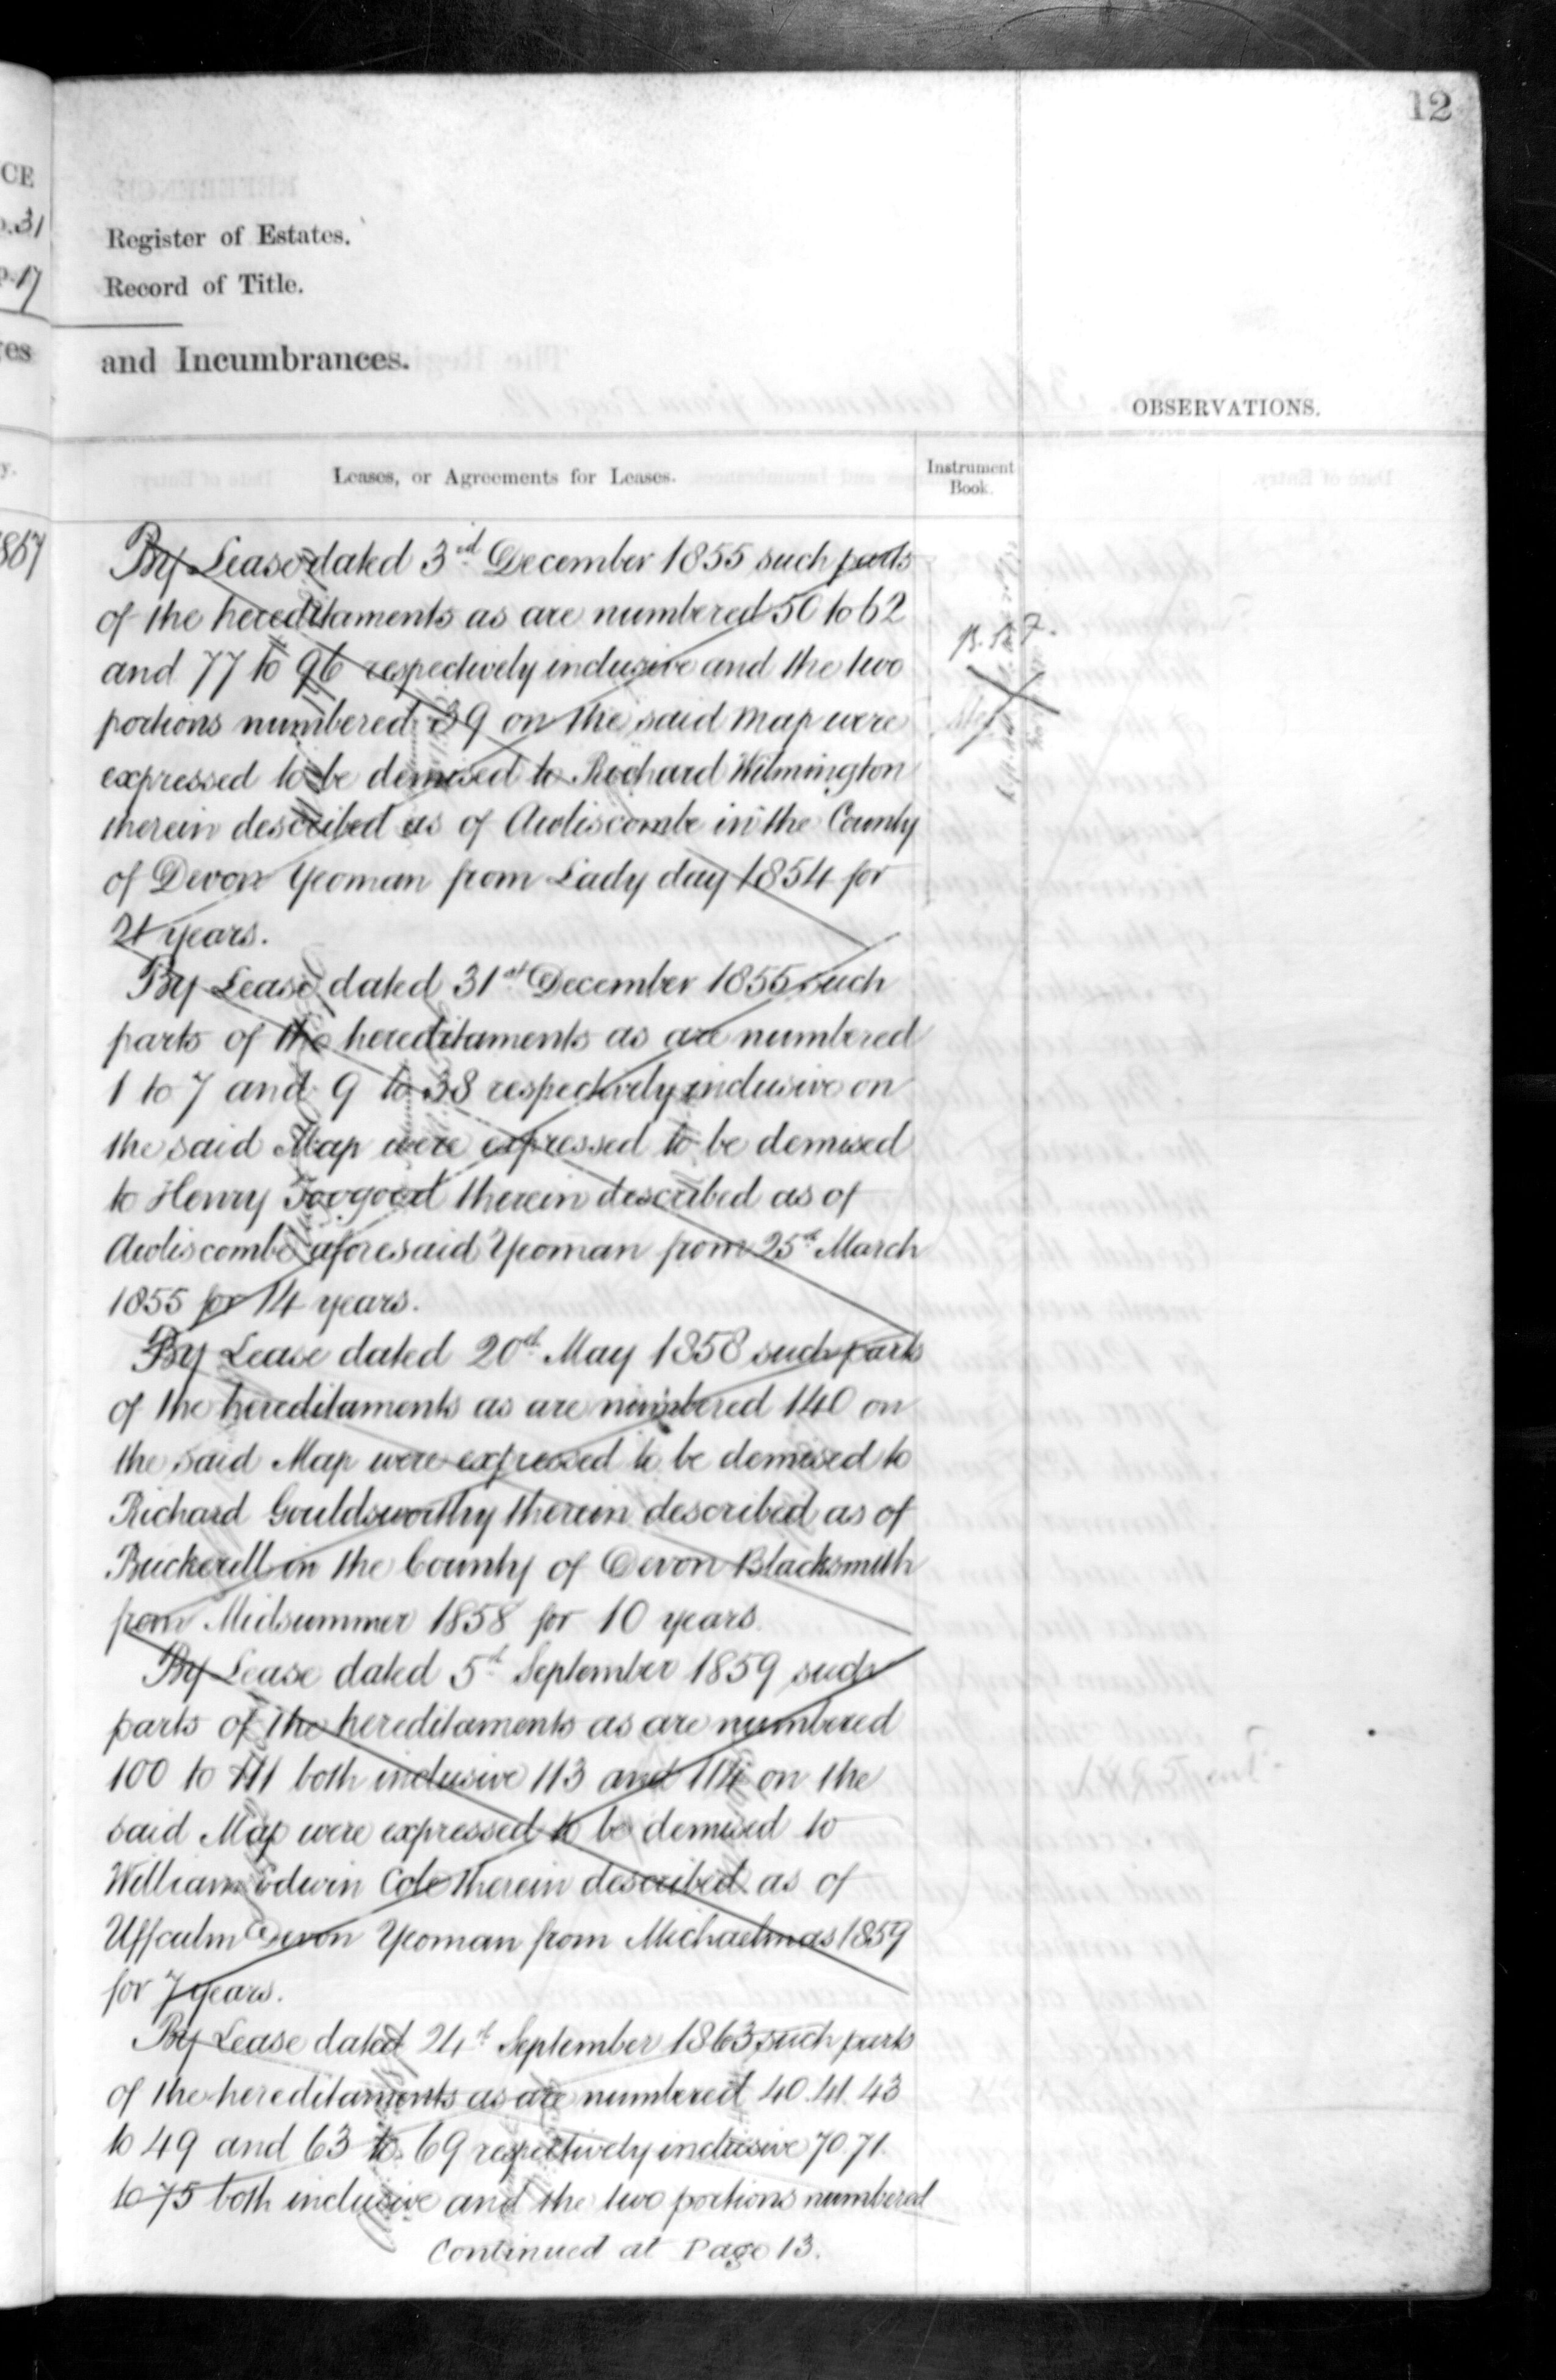 12
CE
Register of Estates.
Record of Title.
and Incumbrances.
OBSERVATIONS.
Leases, or Agreements for Leases.
Instrument
Book.
By Lease dated 3rd December 1855 such parts
of the hereditaments as are numbered 50 to 62
and 77 to 96 respectively inclusive and the two
portions numbered 39 on the said map were
expressed to be demised to Richard Wilmington
therein described as of Awliscombe in the County
of Devon Yeoman from Lady day 1854 for
21 years.
By Lease dated 31st December 1855 such
parts of the hereditaments as are numbered
1 to 7 and 9 to 38 respectively inclusive on
the said Map were expressed to be demised
to Henry Toogood therein described as of
Awliscombe aforesaid Yeoman from 25th March
1855 for 14 years.
By Lease dated 20th May 1858 such parts
of the hereditaments as are numbered 140 on
the said Map were expressed to be demised to
Richard Gouldsworthy therein described as of
Buckerell in the County of Devon Blacksmith
from Midsummer 1858 for 10 years.
By Lease dated 5th September 1859 such
parts of the hereditaments as are numbered
100 to 111 both inclusive 113 and 114 on the
said Map were expressed to be demised to
William Edwin Cole therein described as of
Uffculm Devon Yeoman from Michaelmas 1859
for 7 years.
By Lease dated 24th September 1863 such parts
of the hereditaments as are numbered 40. 41. 43
to 49 and 63 to 69 respectively inclusive 70. 71.
to 75 both inclusive and the two portions numbered
Continued at Page 13.